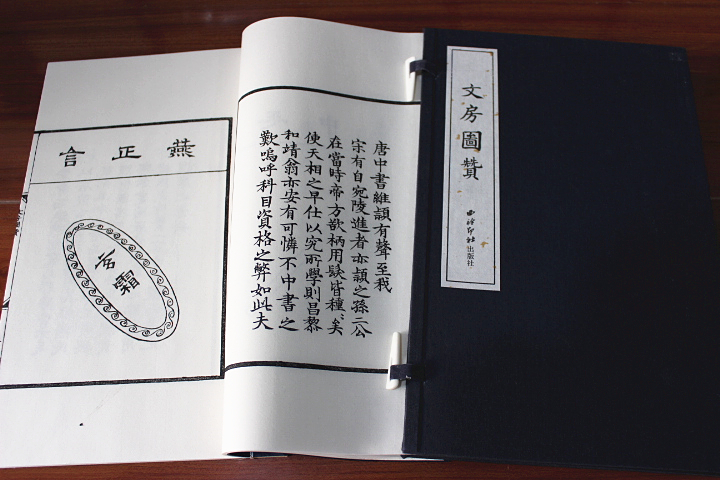 文房圖贊
西泠印社出版社
唐中書維頴有聲至我
宋有自宛陵進者亦頴之孫二公
在當時帝方欲柄用鬚皆種〻矣
使天相之早仕以究所學則昌黎
和靖翁亦安有可憐不中書之
歎嗚呼科目資格之弊如此夫
燕正言
玄霜